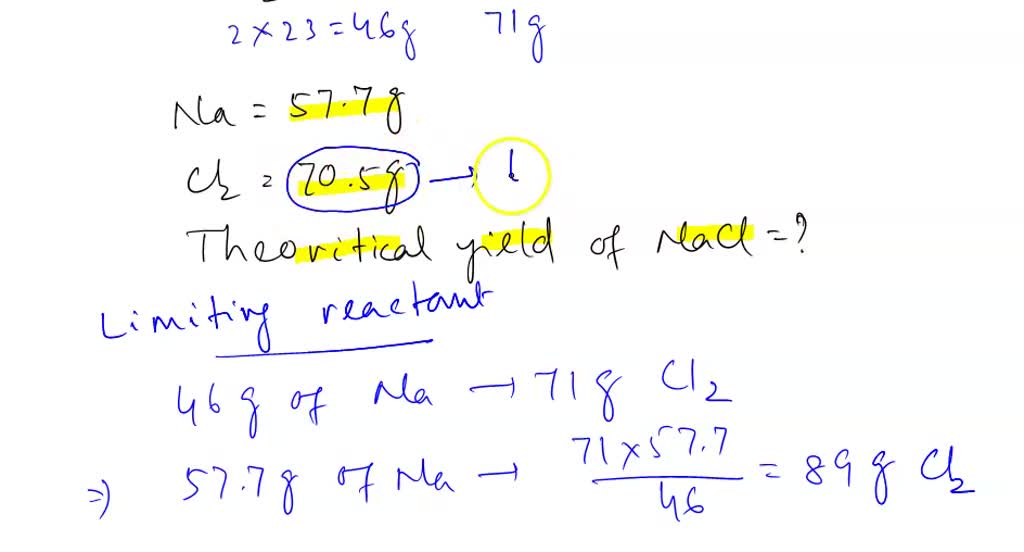 2 × 23 = 46g 71g
Na = 57.7g
Cl2 = 70.5g →
Theoritical yield of NaCl = ?
Limiting reactant
46 g of Na → 71 g Cl2
⇒ 57.7g of Na → 71 × 57.7 / 46 = 89 g Cl2